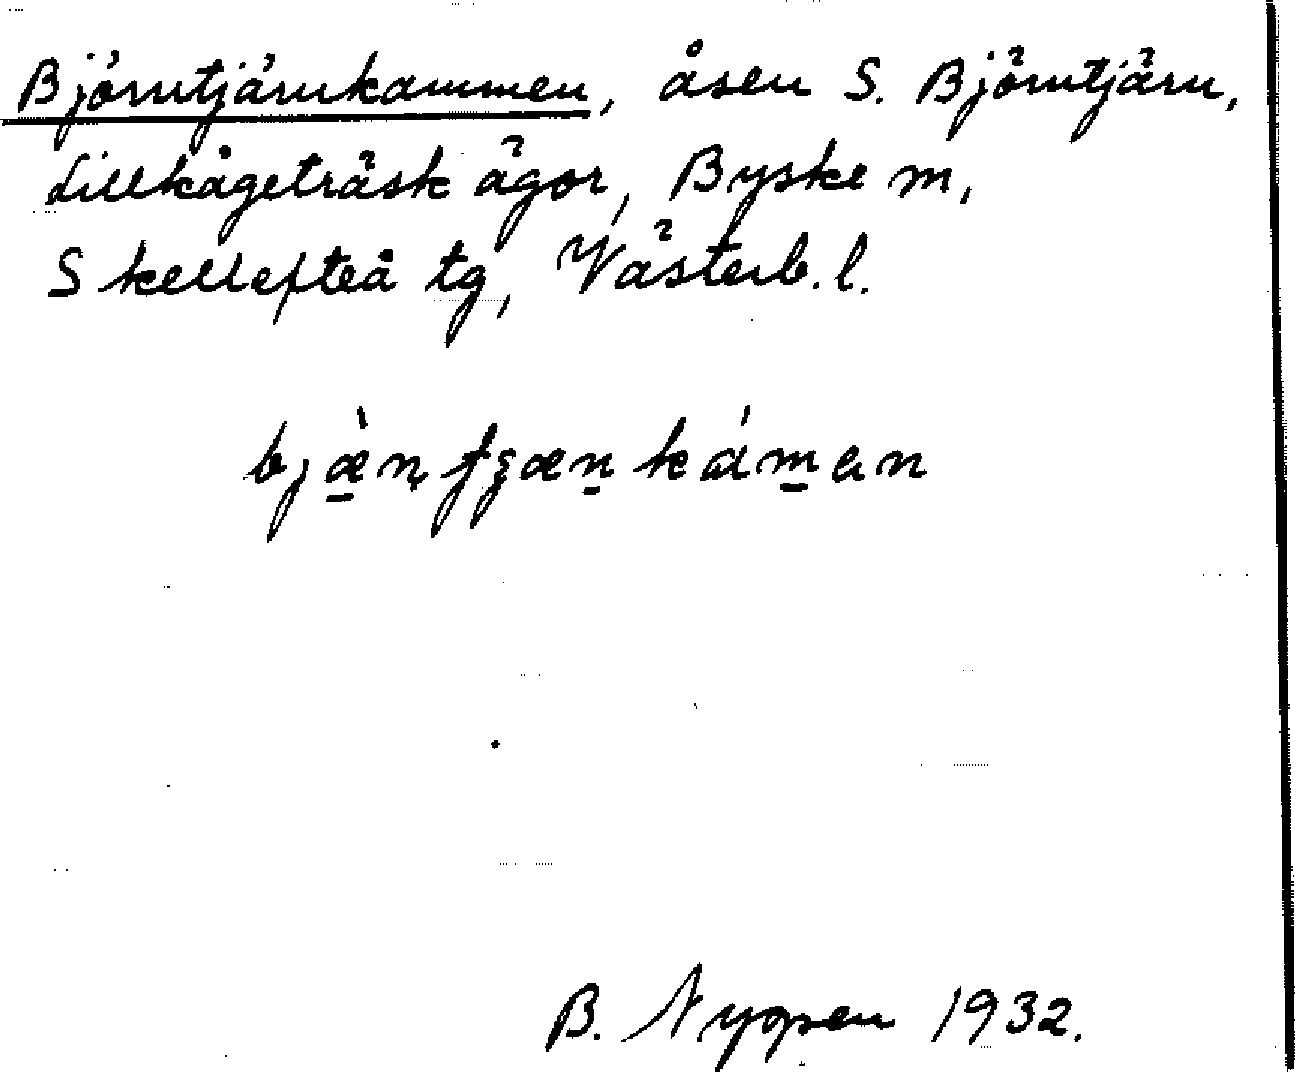 Björntjärnkammen, åsen S. Björntjärn,
Lillkågeträsk ägor, Byske m,
Skellefteå tg, Västerb. l.
B. Nygren 1932.